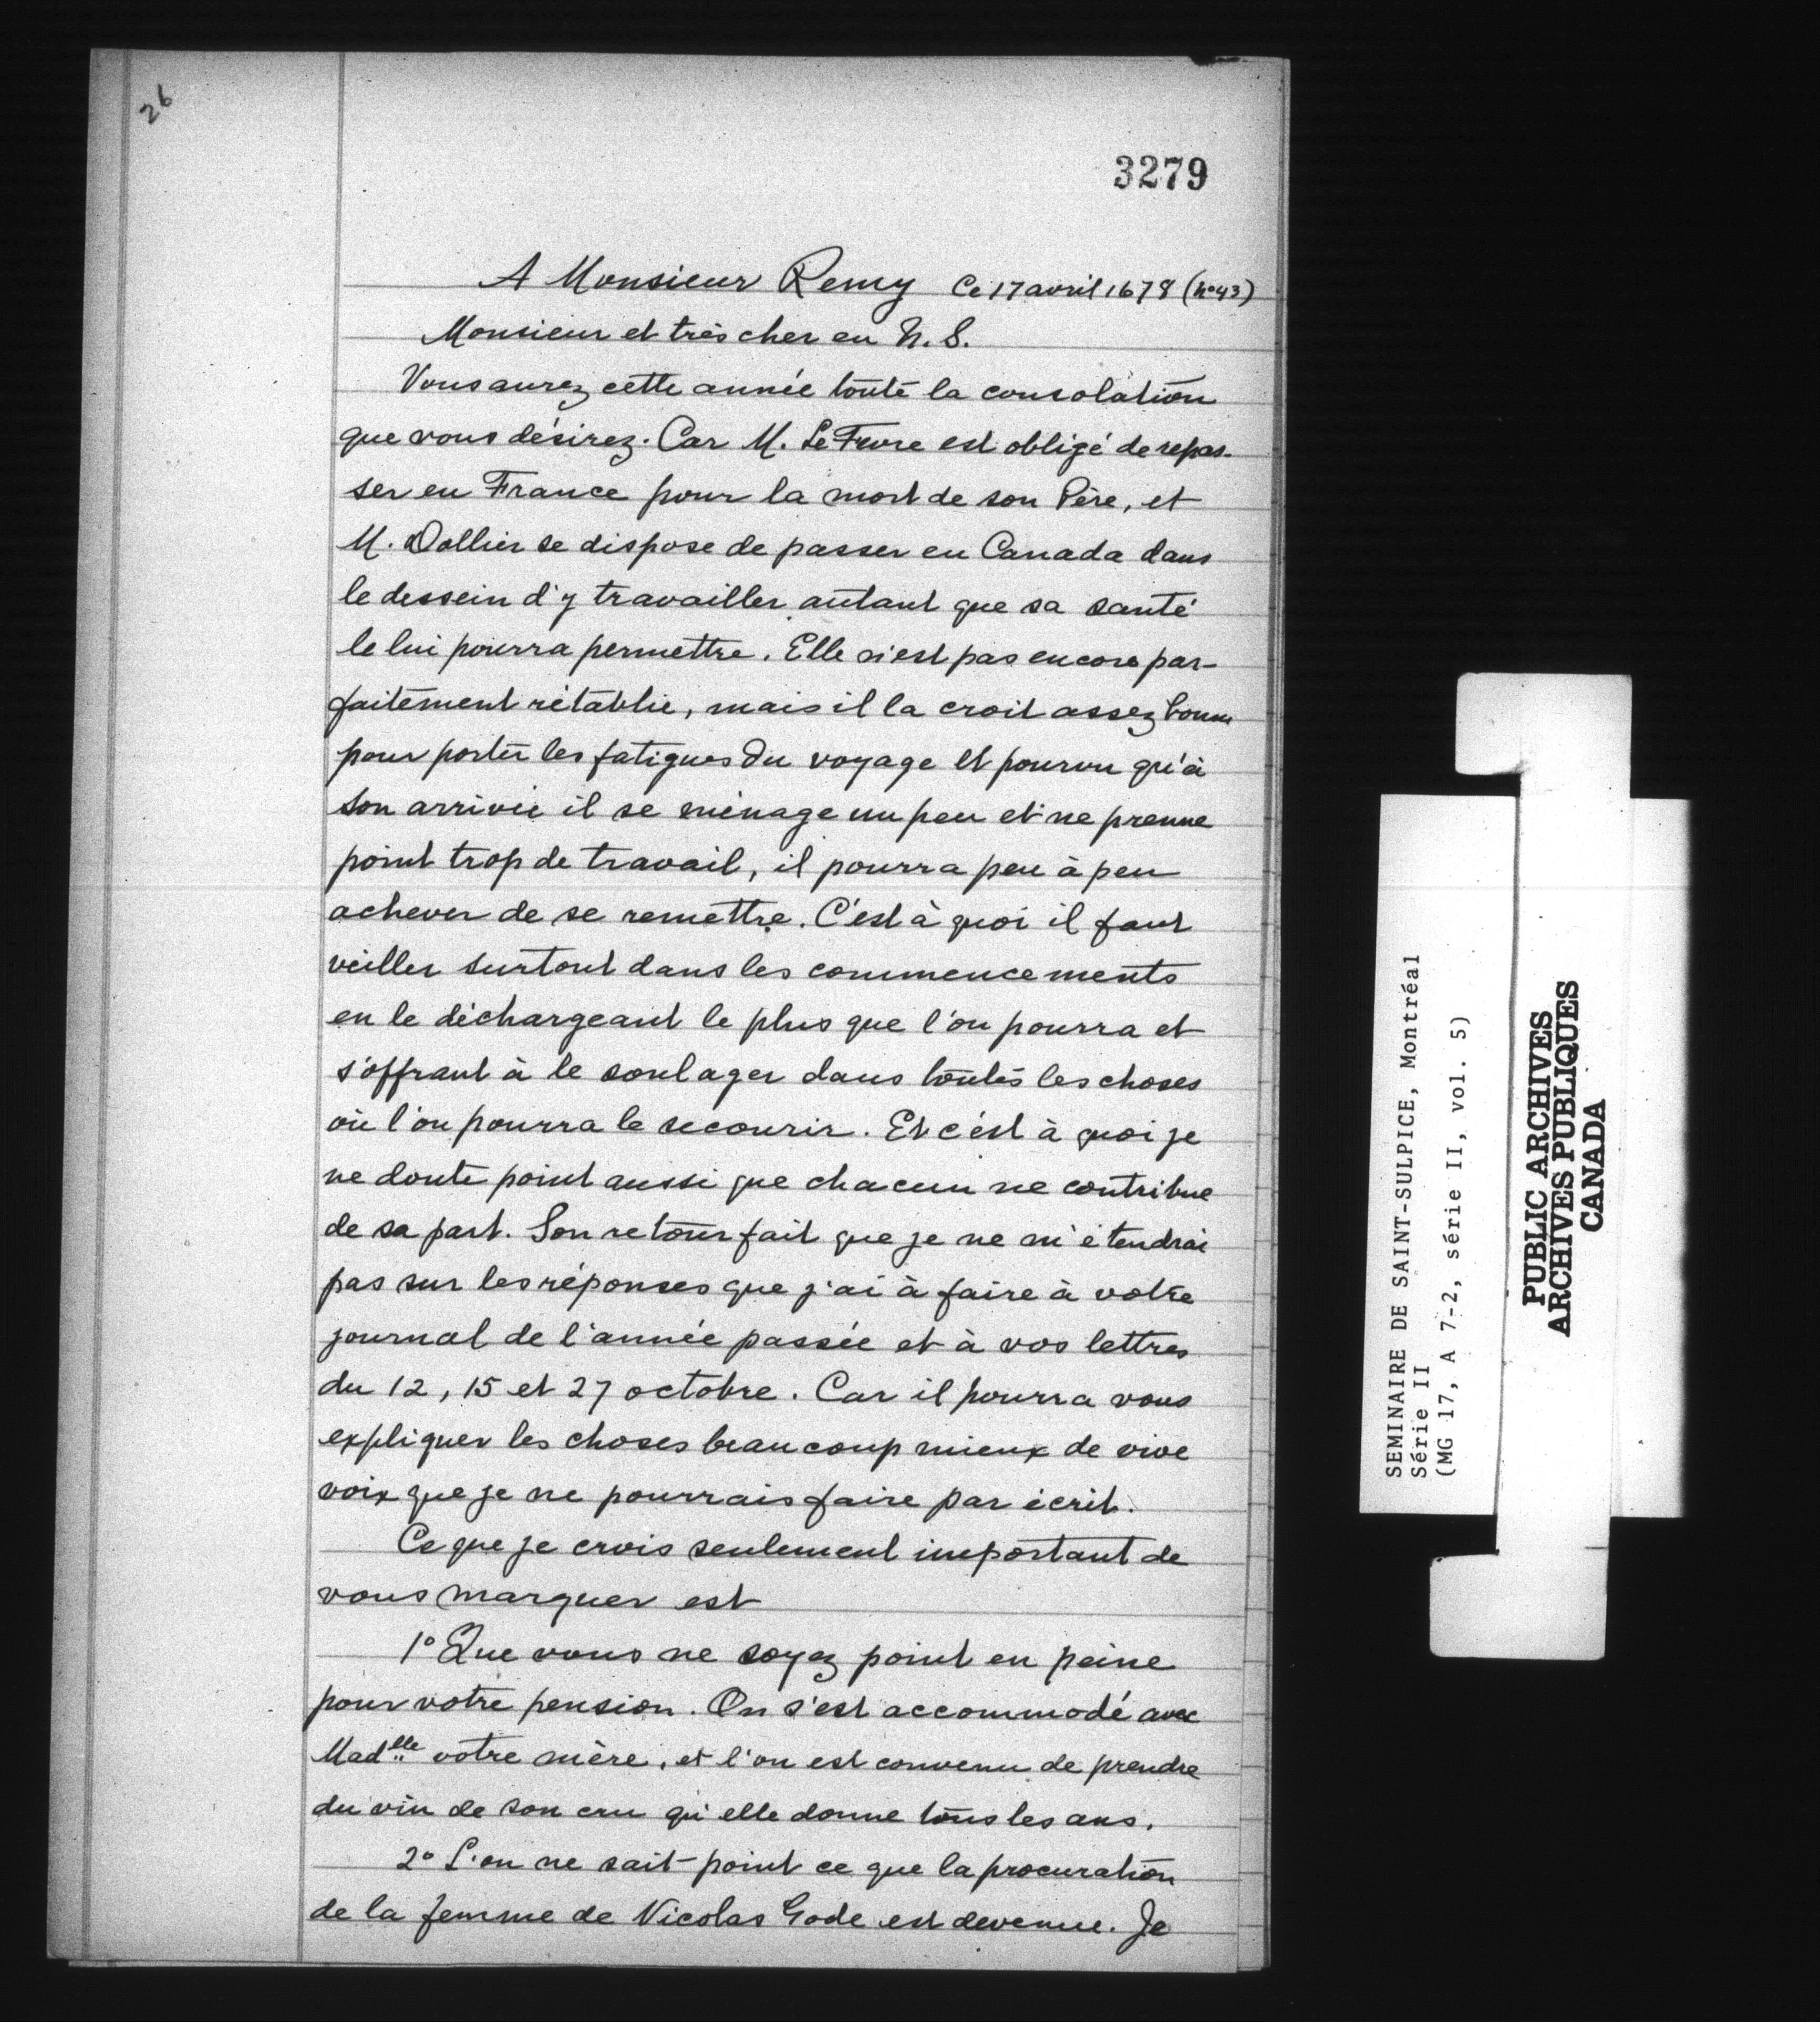 26
3279
A Monsieur Remy Ce 17 avril 1678 (no 43)
Monsieur et très cher en N. S.
Vous aurez cette année toute la consolation
que vous désirez. Car M. LeFevre est obligé de repas-
ser en France pour la mort de son Père, et
M. Dollier se dispose de passer en Canada dans
le dessein d'y travailler autant que sa santé
le lui pourra permettre. Elle n'est pas encore par-
faitement rétablie, mais il la croit assez bonne
pour porter les fatigues du voyage et pourvu qu'à
son arrivée il se ménage un peu et ne prenne
point trop de travail, il pourra peu à peu
achever de se remettre. C'est à quoi il faut
veiller surtout dans les commencements
en le déchargeant le plus que l'on pourra et
s'offrant à le soulager dans toutes les choses
où l'on pourra le secourir. Et c'est à quoi je
ne doute point aussi que chacun ne contribue
de sa part. Son retour fait que je ne m'étendrai
pas sur les réponses que j'ai à faire à votre
journal de l'année passée et à vos lettres
du 12, 15 et 27 octobre. Car il pourra vous
expliquer les choses beaucoup mieux de vive
voix que je ne pourrais faire par écrit.
Ce que je crois seulement important de
vous marquer est
1° Que vous ne soyez point en peine
pour votre pension. On s'est accommodé avec
Madelle votre mère, et l'on est convenu de prendre
du vin de son cru qu'elle donne tous les ans.
2° L'on ne sait point ce que la procuration
de la femme de Nicolas Gode est devenue. Je
SEMINAIRE DE SAINT-SULPICE, Montréal
Série II
(MG 17, A 7-2, série II, vol. 5)
PUBLIC ARCHIVES
ARCHIVES PUBLIQUES
CANADA